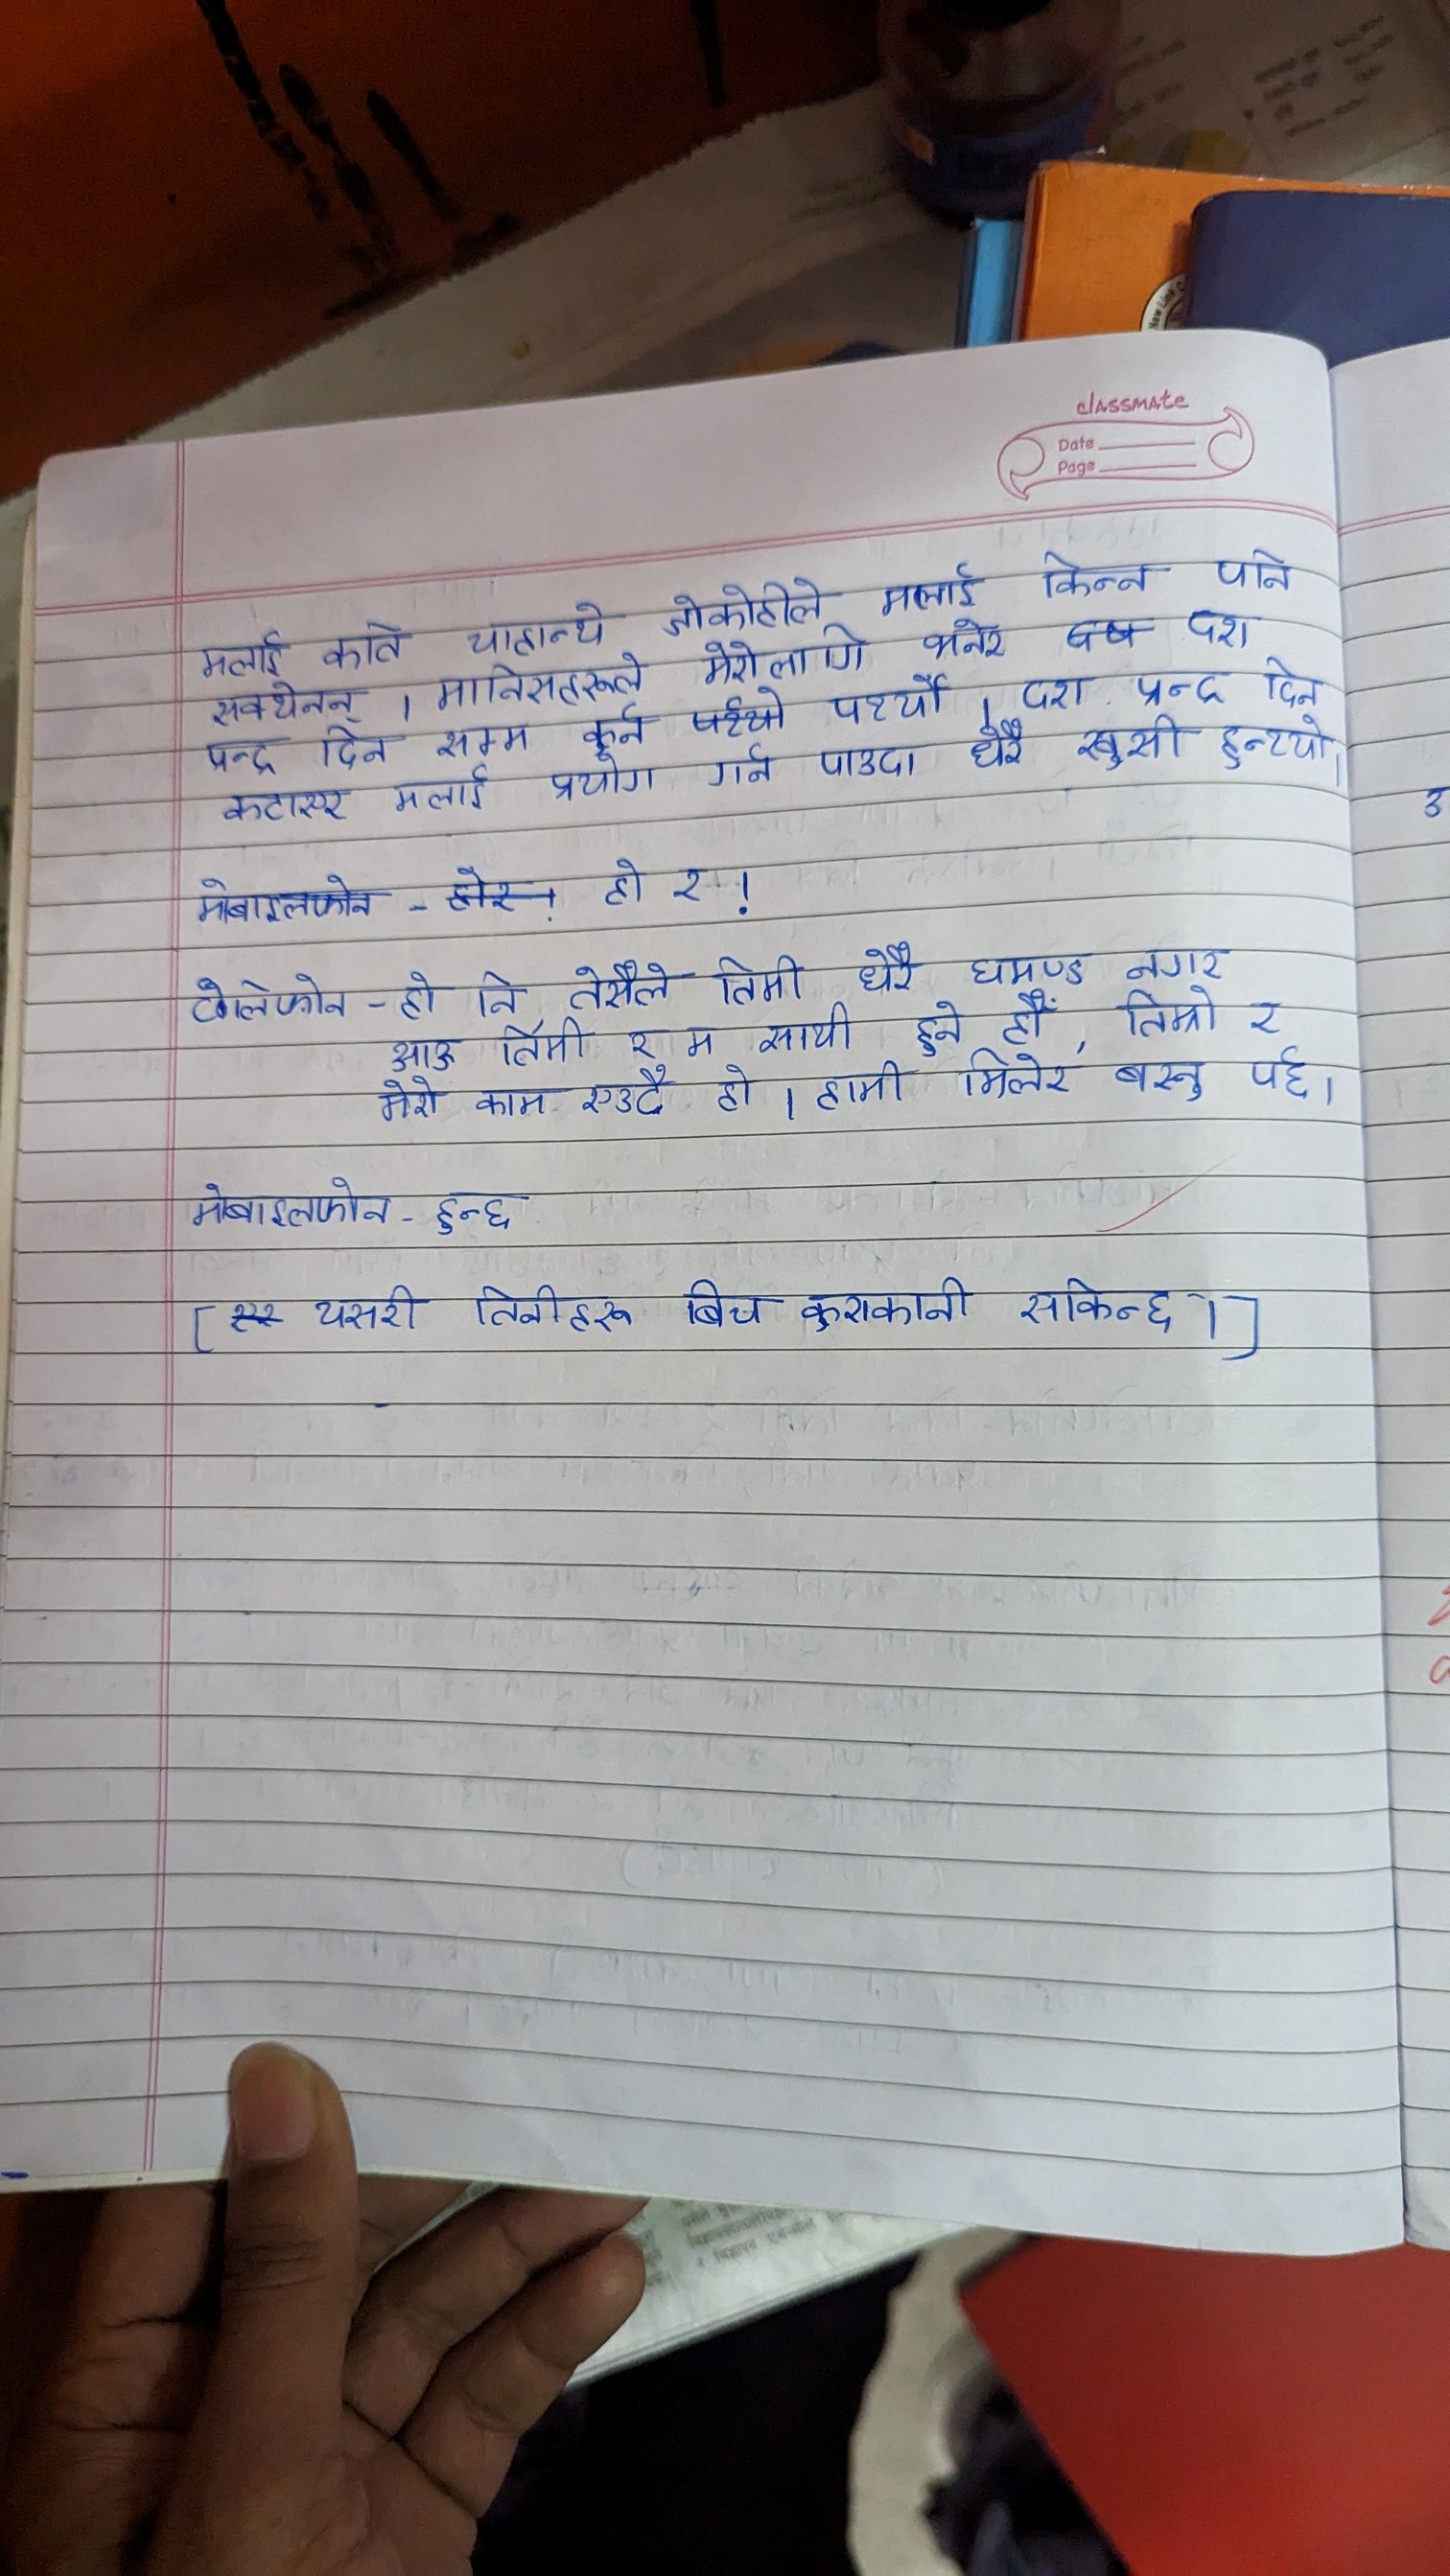 classmate
Date
Page
New Line
मलाई कति चाहान्थे जोकोहीले मलाई किन्न पनि
सक्थेनन् । मानिसहरूले मेरोलागि भनेर दश
पन्द्र दिन सम्म कुर्न पर्थ्यो । दश प्रन्द्र दिन
कटाएर मलाई प्रयोग गर्न पाउदा धेरै खुसी हुन्थ्यो।
मोबाइलफोन - हो र !
टेलिफोन - हो नि तेसैले तिमी धेरै घमण्ड नगर
आऊ तिमी र म साथी हुने हौँ, तिम्रो र
मेरो काम एउटै हो । हामी मिलेर बस्नु पर्छ।
मोबाइलफोन - हुन्छ
[ यसरी तिनीहरू बिच कुराकानी सकिन्छ । ]